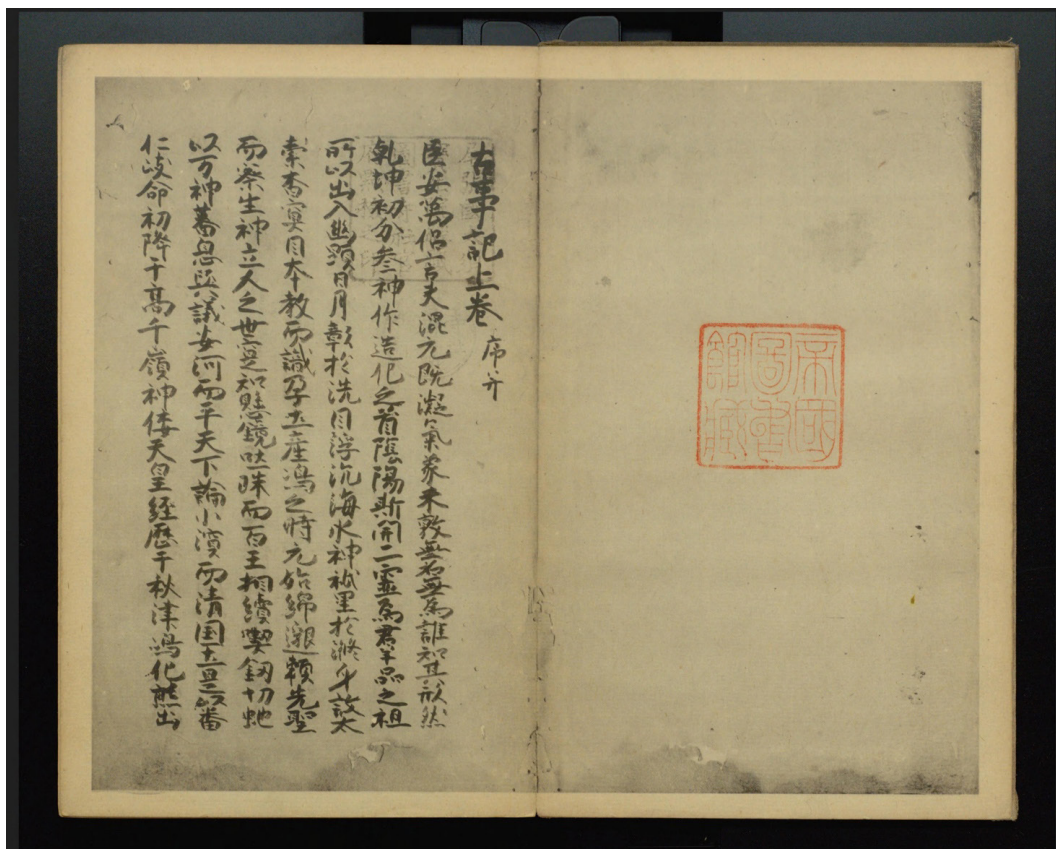 帝國
圖書
館藏
古事記上卷 序并
臣安萬侶言夫混元既凝氣象未敦無名無為誰知其形然
乾坤初分参神作造化之首陰陽斯開二靈為群品之祖
所以出入幽顕日月彰於洗目浮沉海水神祇呈於滌身故太
素杳冥因本教而識孕土產嶋之時元始綿邈頼先聖
而察生神立人之世寔知懸鏡吐珠而百王相續喫釼切虵
以万神蕃息与議安河而平天下論小濱而清国土是以番
仁岐命初降于高千嶺神倭天皇経歴于秋津嶋化熊出